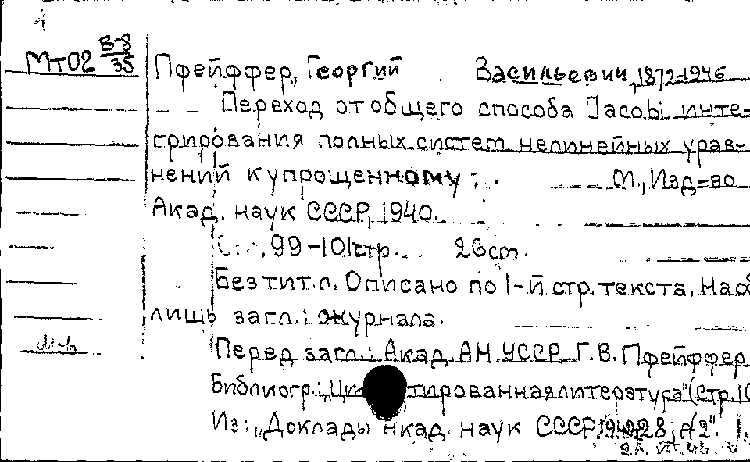 4
МТ02 В-8
35
Пфейффер, Георгий Васильевич, 1872-1946
Переход от общего способа Jacobi инте-
грирования полных систем нелинейных урав-
нений к упрощенному М., Изд-во
Акад. наук СССР, 1940.
99-101 стр. 26 cm.
Без тит. л. Описано по 1-й стр. текста. На об
лишь загл.: журнала.
Перед загл.: Акад. АН УССР Г. В. Пфейффер
Библиогр.: литература" (стр. 10
Из: "Доклады Акад. наук СССР